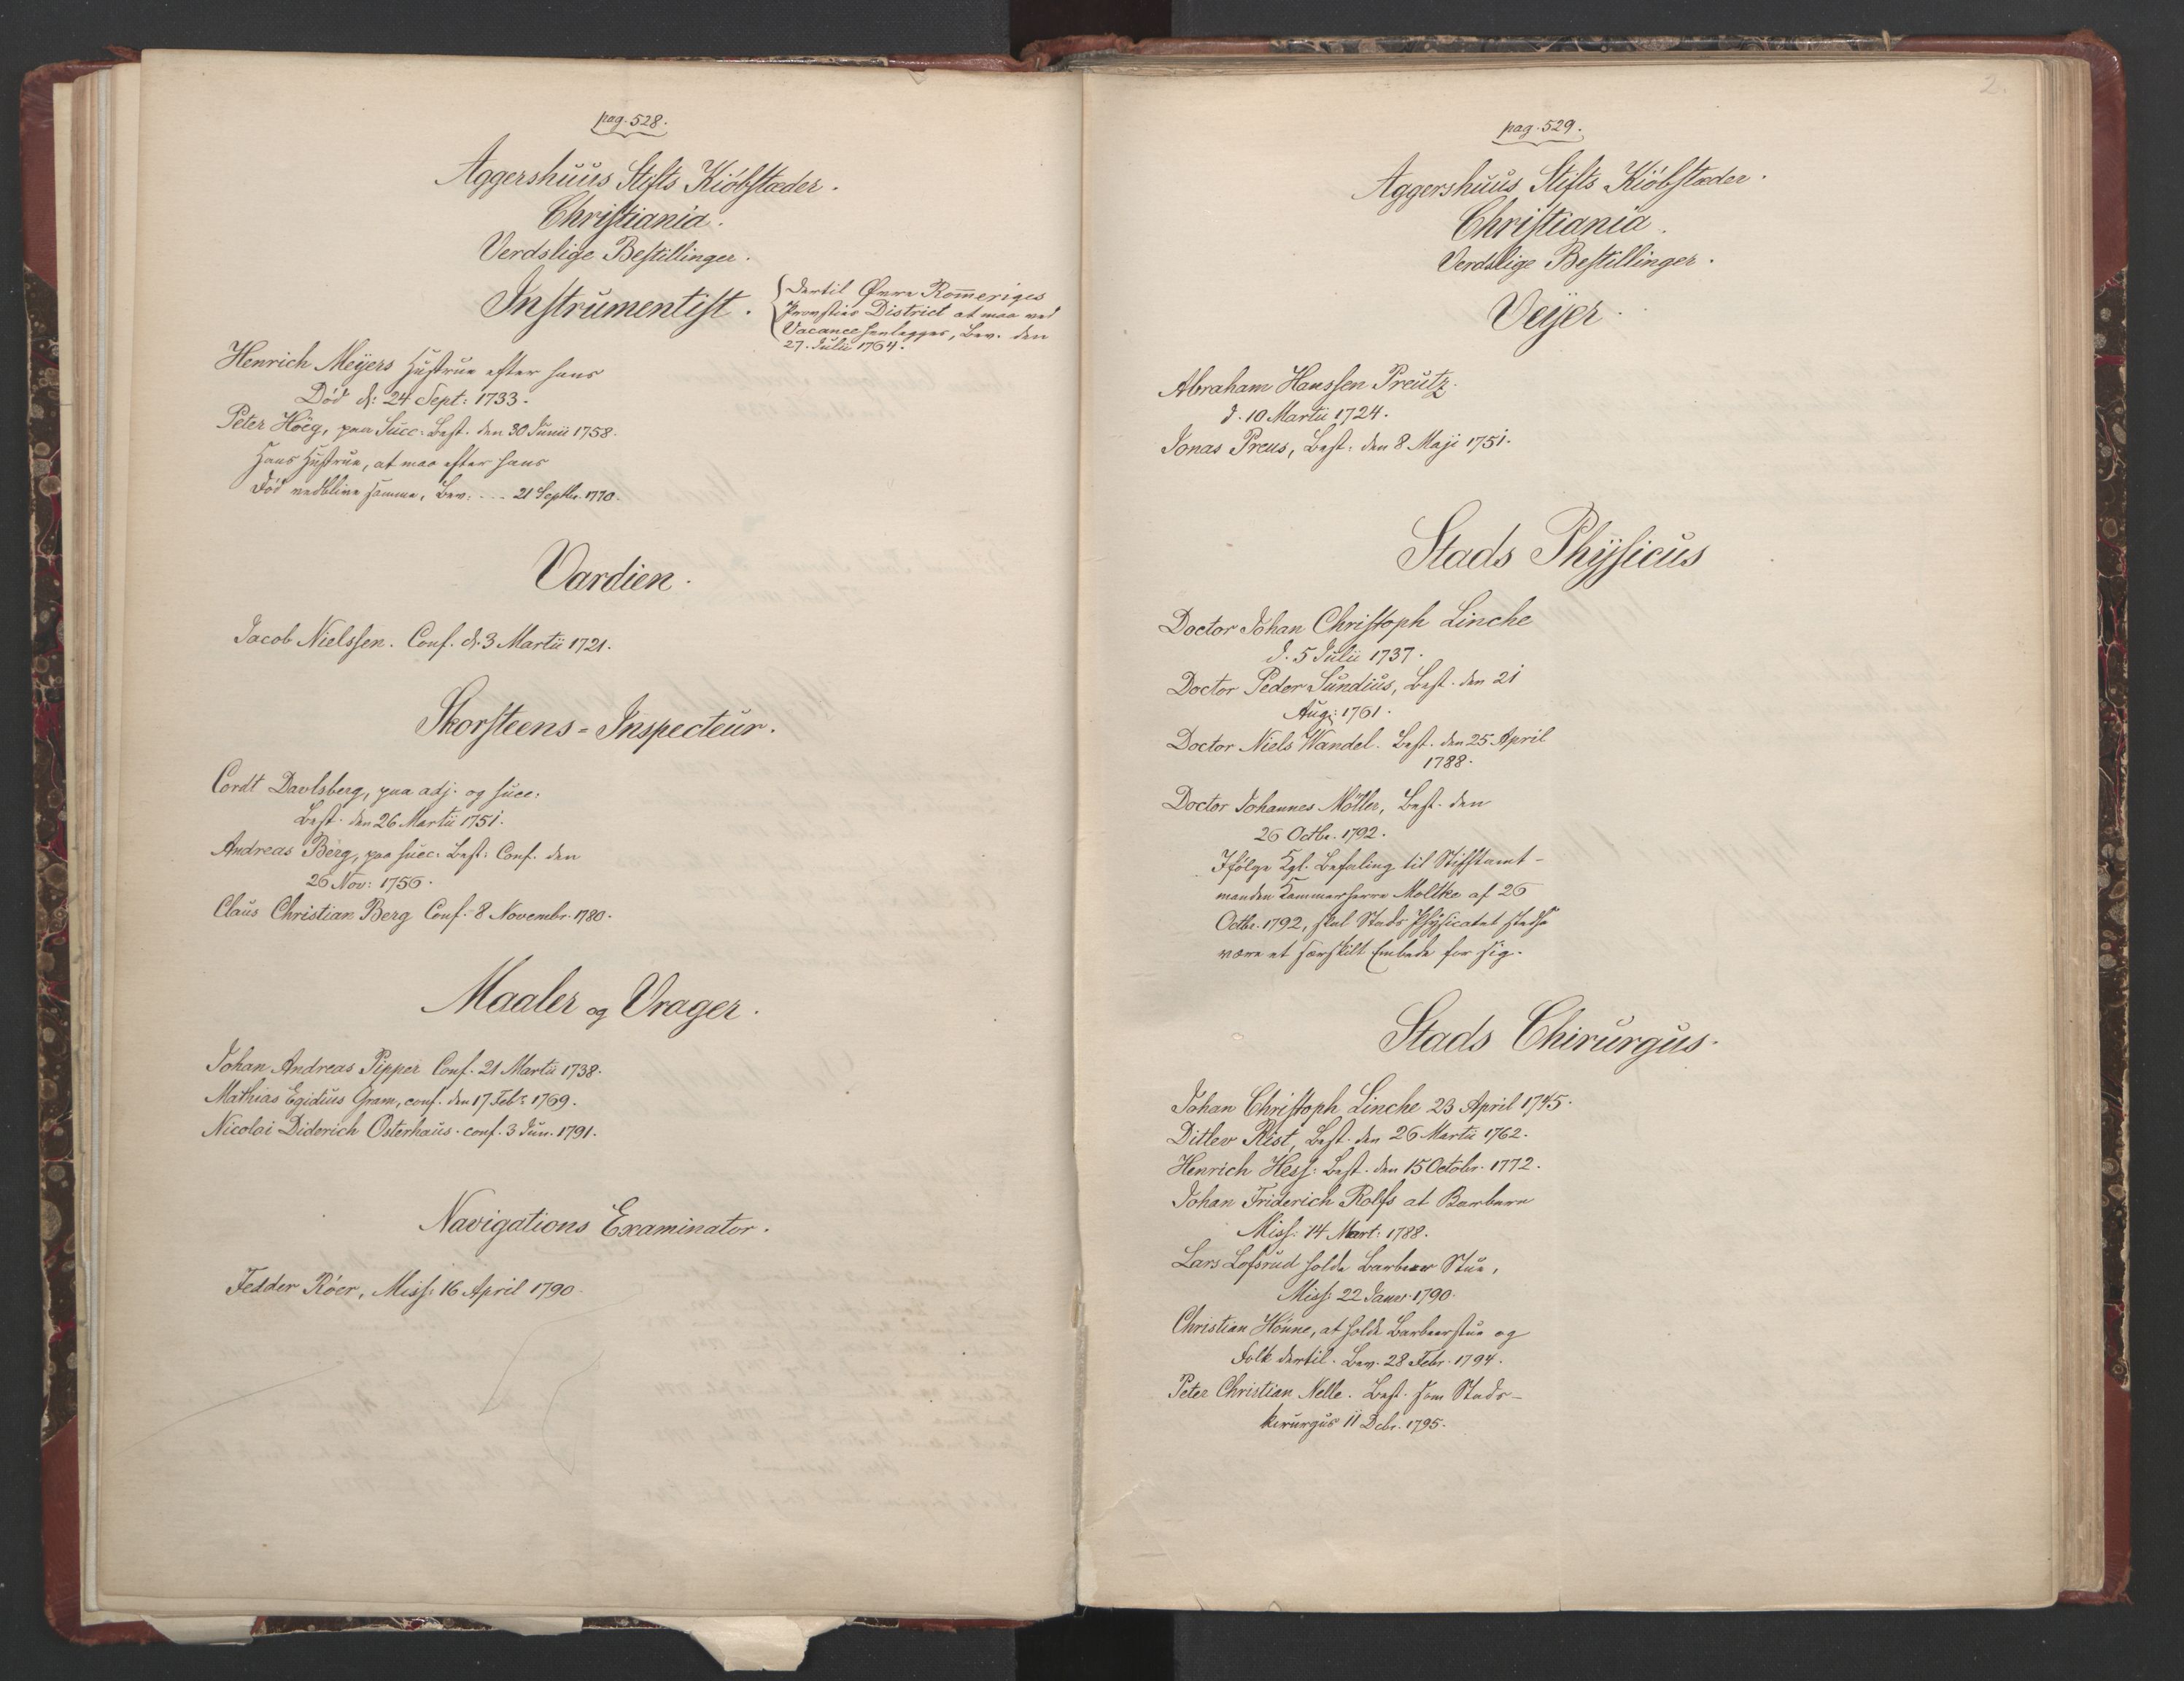 pag. 528.
Aggershuus Stifts Kiöbstæder.
Christiania.
Verdslige Bestillinger.
Instrumentist.
dertil Øvre Rom̄eriges
Provsties District at maa ved
Vacance henlægges, Bev. den
27. Julii 1764.
Henrich Meÿers Hustrue efter hans
Död d: 24 Sept: 1733.
Peter Höeg, paa Succ: Best. den 30 Junii 1758.
Hans Hustrue, at maa efter hans
Död vedblive samme, Bev: ... 21 Septbr. 1770.
Vardien.
Jacob Nielssen. Conf. d. 3 Martii 1721.
Skorsteens-Inspecteur.
Cordt Davlsberg, paa adj. og succ.
Best. den 26 Martii 1751.
Andreas Berg, paa succ. Best: Conf. den
26 Nov: 1756.
Claus Christian Berg Conf. 8 Novembr. 1780.
Maaler og Vrager.
Johan Andreas Pipper Conf. 21 Martii 1738.
Mathias Egidius Gram, conf. den 17 Febr. 1769.
Nicolai Diderich Osterhaus. conf. 3 Jun. 1791.
Navigations Examinator.
Fedder Röer, Miss: 16 April 1790.
2.
pag. 529.
Aggershuus Stifts Kiöbstæder.
Christiania.
Verdslige Bestillinger.
Veÿer.
Abraham Hanssen Preutz.
d. 10 Martii 1724.
Jonas Preus, Best. den 8 Maji 1751.
Stads Physicus
Doctor Johan Christoph Linche
d. 5 Julii 1737.
Doctor Peder Sundius, Best. den 21
Aug: 1761.
Doctor Niels Wandel. Best. den 25 April
1788.
Doctor Johannes Möller, Best. den
26 Octbr. 1792.
Ifölge Kgl. Befaling til Stiftamt-
manden Kammerherre Moltke af 26
Octbr. 1792, skal Stads Physicatet stedse
være et særskilt Embede for sig.
Stads Chirurgus.
Johan Christoph Linche 23 April 1745.
Ditlev Rist, Best. den 26 Martii 1762.
Henrich Hess: Best. den 15 Octobr. 1772.
Johan Friderich Rolfs at Barbere
Miss: 14 Mart: 1788.
Lars Lofsrud holde Barbeer Stue,
Miss: 22 Januar. 1790.
Christian Höune, at holde Barbeerstue og
Folk dertil. Bev. 28 Febr. 1794.
Peter Christian Nelle. Best. som Stads-
kirurgus 11 Debr. 1795.